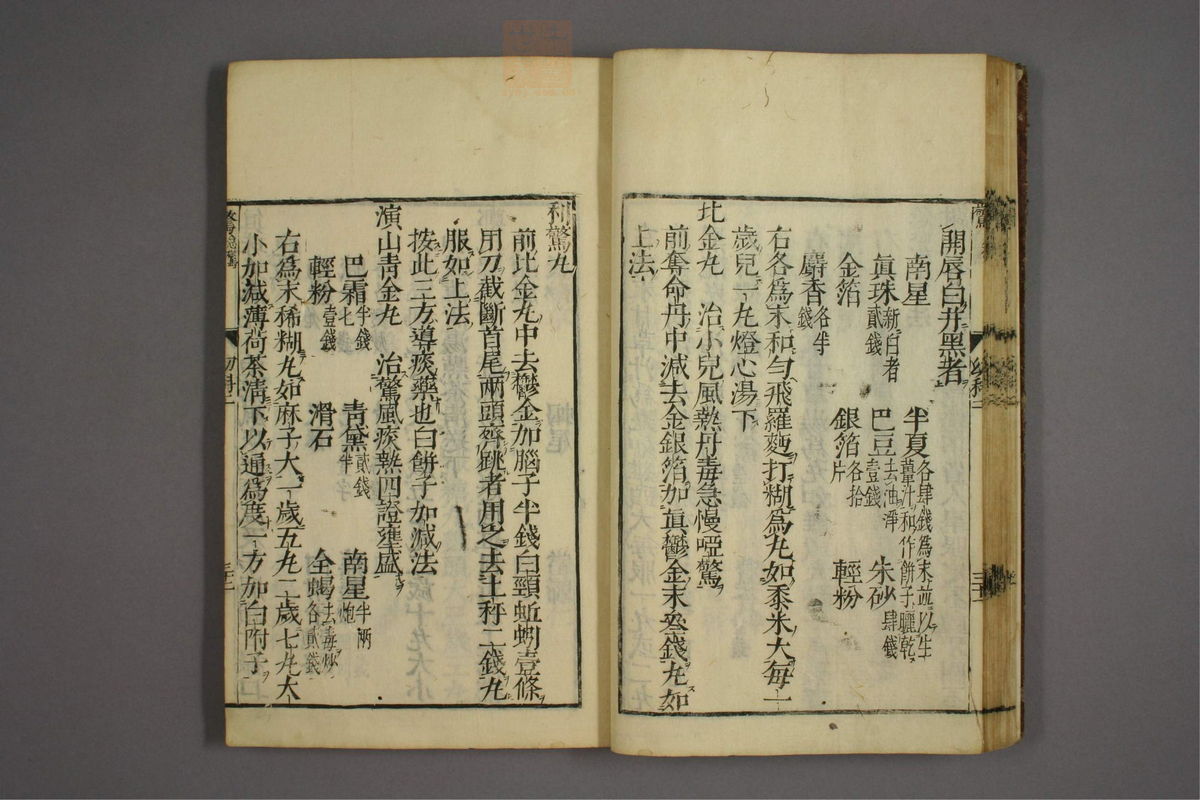 開唇白幷黑者
南星 半夏各肆錢爲末並以生薑汁和作餅子曬乾
眞珠新白者貳錢 巴豆去油淨壹錢 朱砂肆錢
金箔 銀箔各拾片 輕粉
麝香各半錢
右各爲末和勻飛羅麪打糊爲丸如黍米大每一
歲兒一丸燈心湯下
比金丸 治小兒風熱丹毒急慢啞驚
前奪命丹中減去金銀箔加眞鬱金末叄錢丸如
上法
利驚丸
前比金丸中去鬱金加腦子半錢白頸蚯蚓壹條
用刀截斷首尾兩頭齊跳者用之去土秤二錢丸
服如上法
按此三方導痰藥也白餅子加減法
演山青金丸 治驚風痰熱四證壅盛
巴霜半錢七 青黛貳錢半 南星半兩炮
輕粉壹錢 滑石 全蝎去毒炒各貳錢
右爲末稀糊丸如麻子大一歲五丸二歲七丸大
小加減薄荷茶清下以通爲度一方加白附子